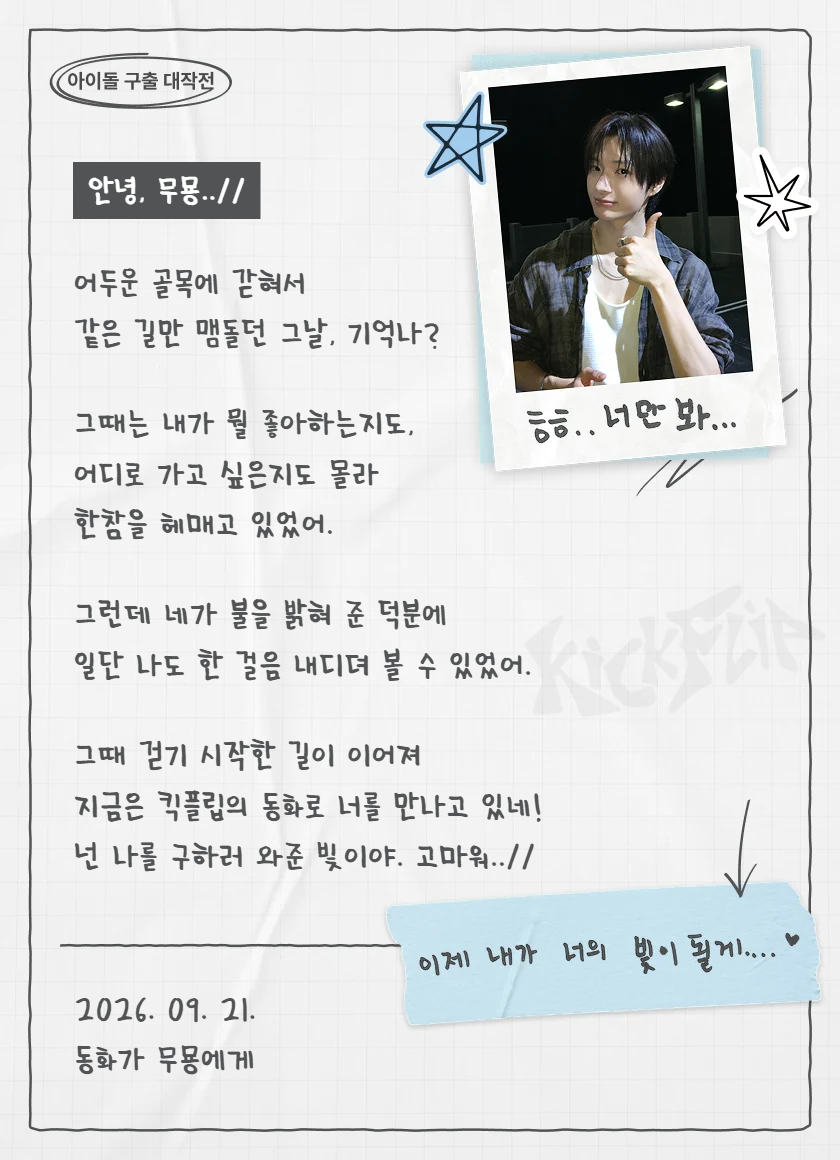 아이돌 구출 대작전
안녕, 무묭..//
어두운 골목에 갇혀서
같은 길만 맴돌던 그날, 기억나?
그때는 내가 뭘 좋아하는지도,
어디로 가고 싶은지도 몰라
한참을 헤매고 있었어.
그런데 네가 불을 밝혀 준 덕분에
일단 나도 한 걸음 내디뎌 볼 수 있었어.
그때 걷기 시작한 길이 이어져
지금은 킥플립의 동화로 너를 만나고 있네!
넌 나를 구하러 와준 빛이야. 고마워..//
흠흠.. 너만 봐...
KickFlip
이제 내가 너의 빛이 될게.... ♥
2026. 09. 21.
동화가 무묭에게